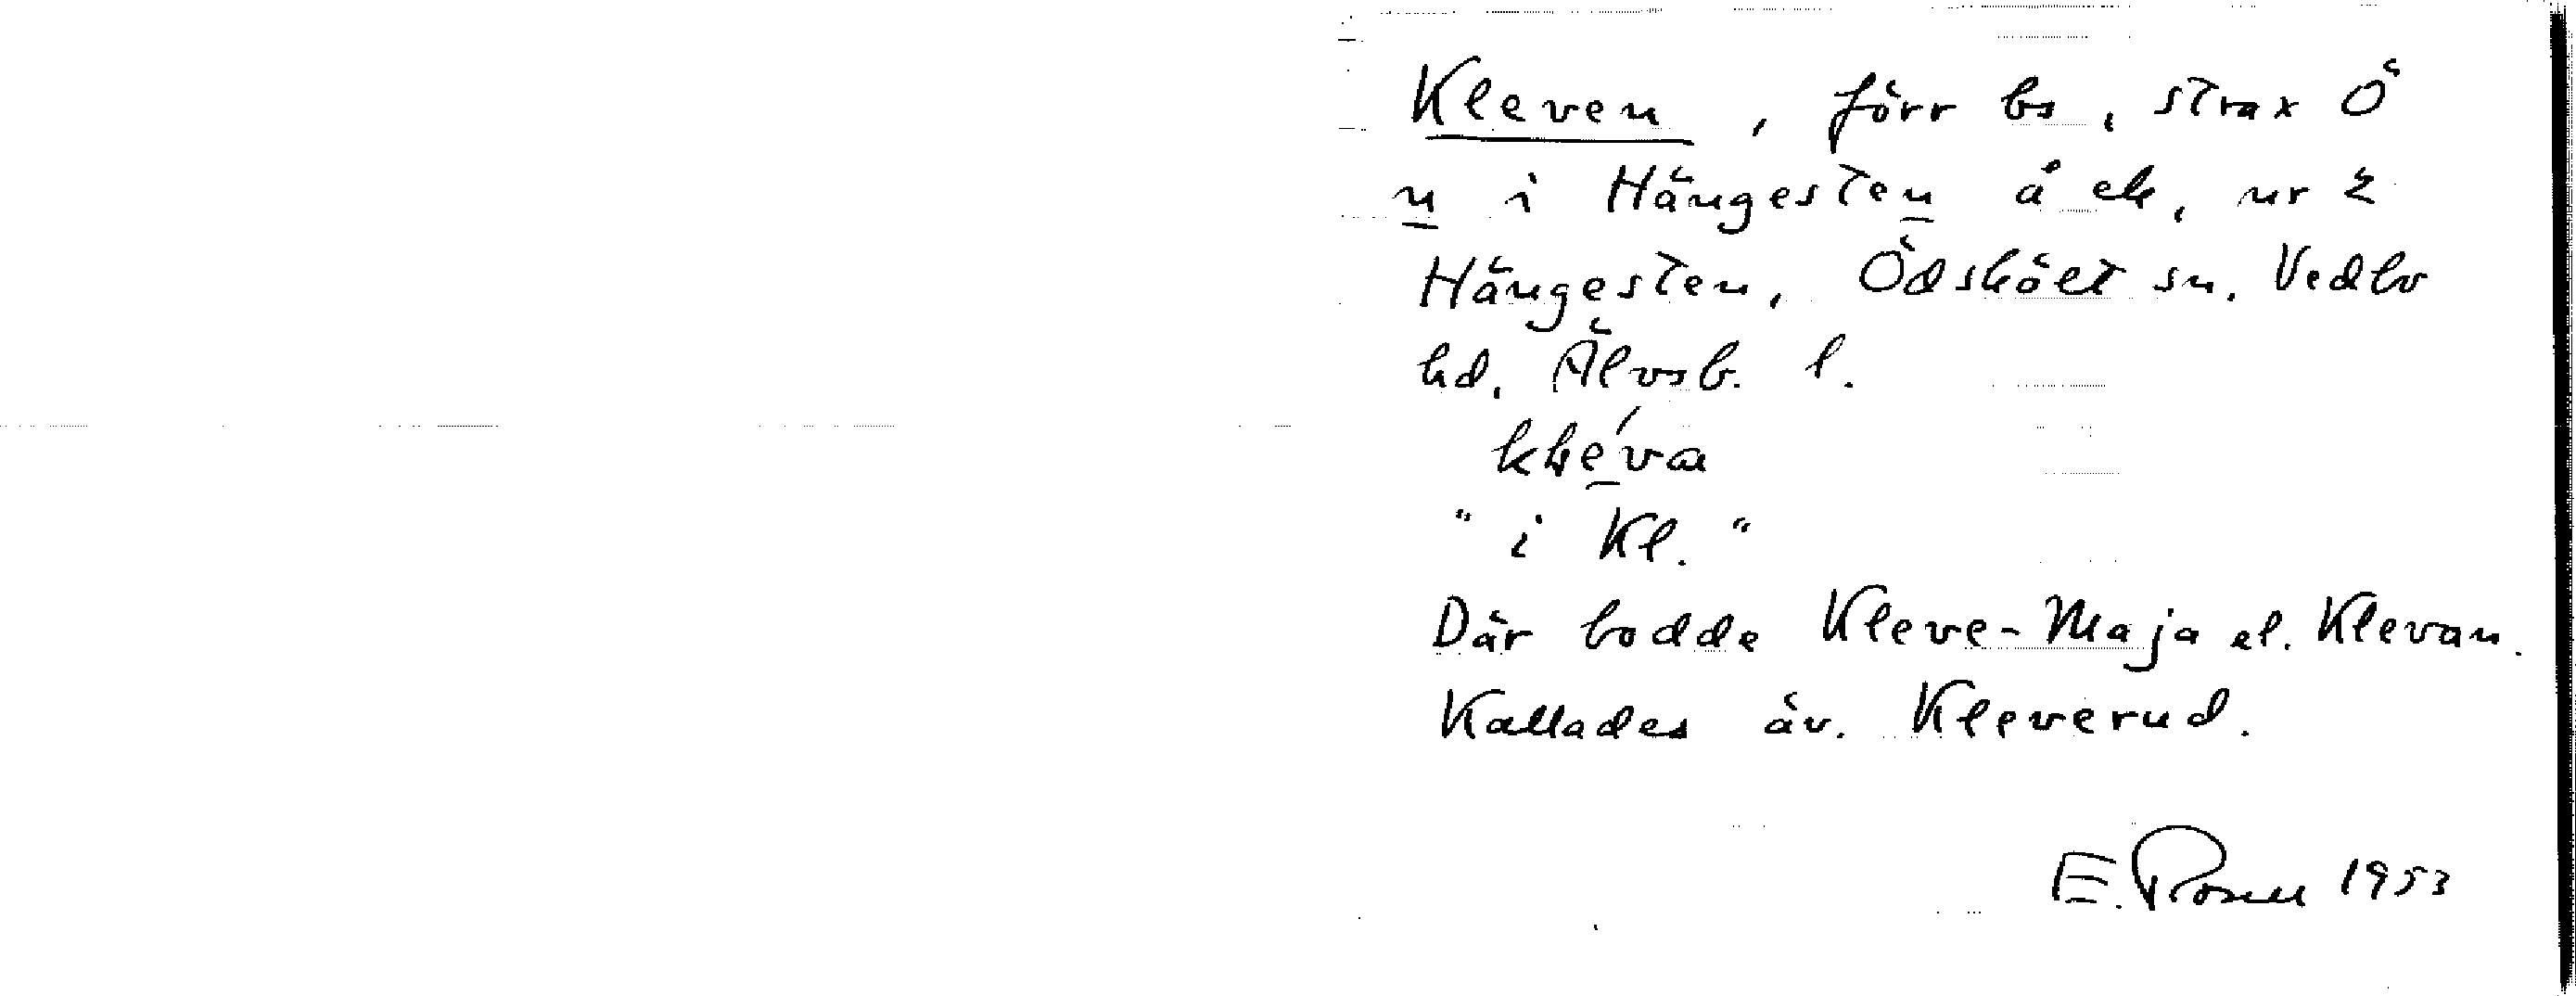 Kleven, förr bs, strax Ö
n i Hängesten å ek, nr 2
Hängesten, Ödskölt sn. Vedbo
hd. Älvsb. l.
"i Kl."
Där bodde Kleve-Maja el. Klevan.
Kallades äv. Kleverud.
E. Rosell 1953